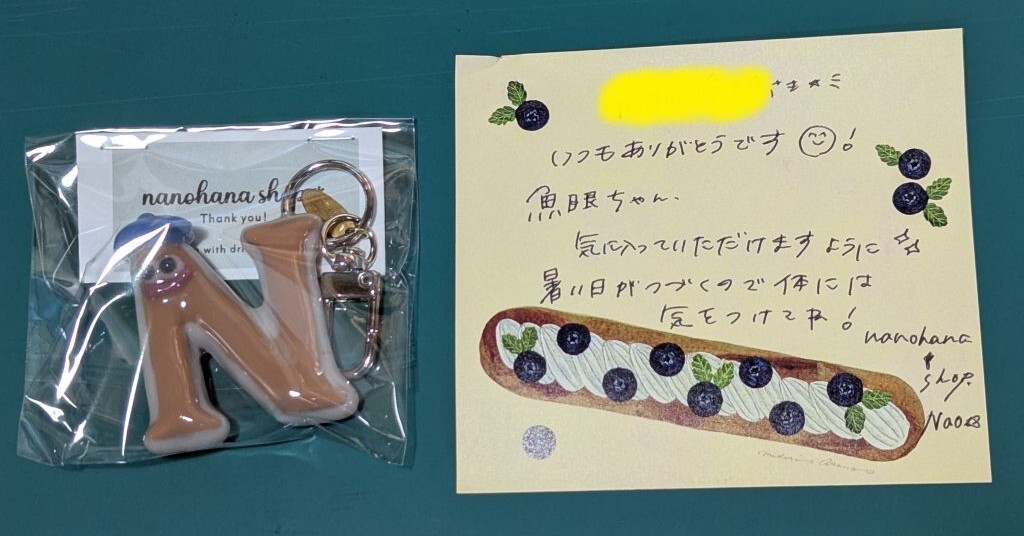 nanohana shop
Thank you!
with dri
さま☆彡
いつもありがとうです😊!
魚眼ちゃん、
気に入っていただけますように☆☆
暑い日がつづくので体には
気をつけてね!
nanohana
shop.
Nao